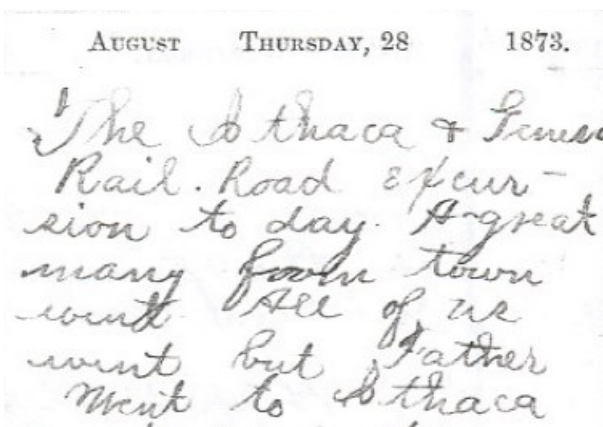 AUGUST THURSDAY, 28 1873.
The Ithaca &
Rail. Road excur-
sion to day. A great
many from town
went All of us
went but Father
Went to Ithaca